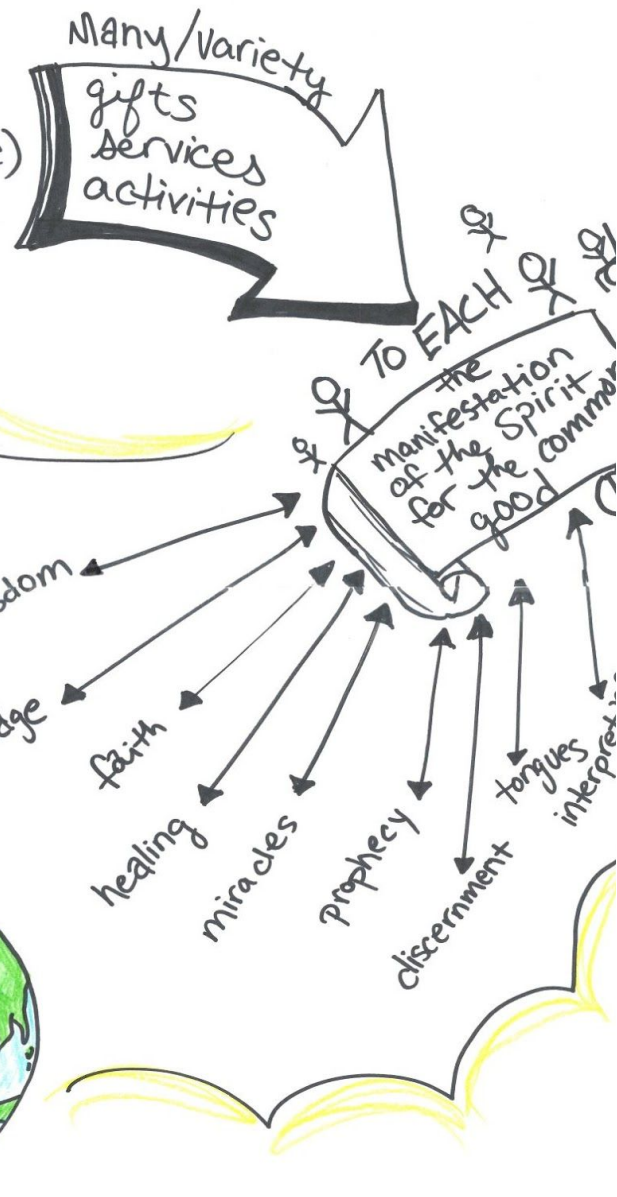 Many/variety
gifts
services
activities
TO EACH
the
manifestation
of the Spirit
for the common
good
faith
healing
miracles
prophecy
discernment
tongues